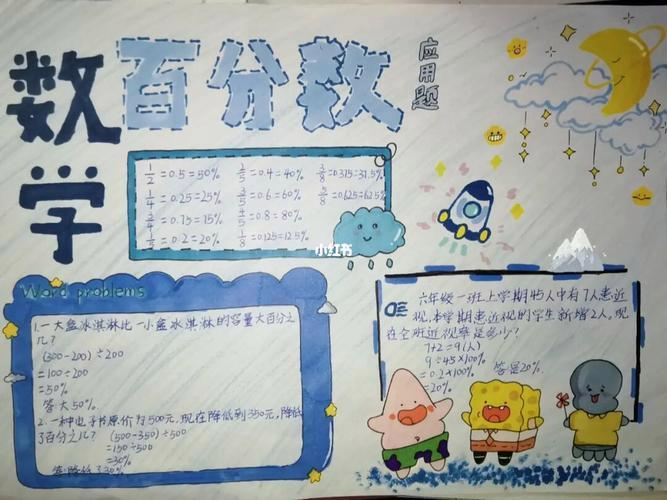 数学
百分数
应用题
1/2=0.5=50% 2/5=0.4=40% 3/8=0.375=37.5%
1/4=0.25=25% 3/5=0.6=60% 5/8=0.625=62.5%
3/4=0.75=75% 4/5=0.8=80%
1/5=0.2=20% 1/8=0.125=12.5%
小红书
Word problems
1.一大盒冰淇淋比一小盒冰淇淋的容量大百分之
几?
(300-200)÷200
=100÷200
=50%
答:大50%.
2.一种电子书原价为500元,现在降低到350元,降低
了百分之几? (500-350)÷500
=150÷500
=30%
答:降低了30%
六年级一班上学期45人中有7人患近
视,本学期患近视的学生新增2人,现
在全班近视率是多少?
7+2=9(人)
9÷45×100%
=0.2×100% 答:是20%.
=20%